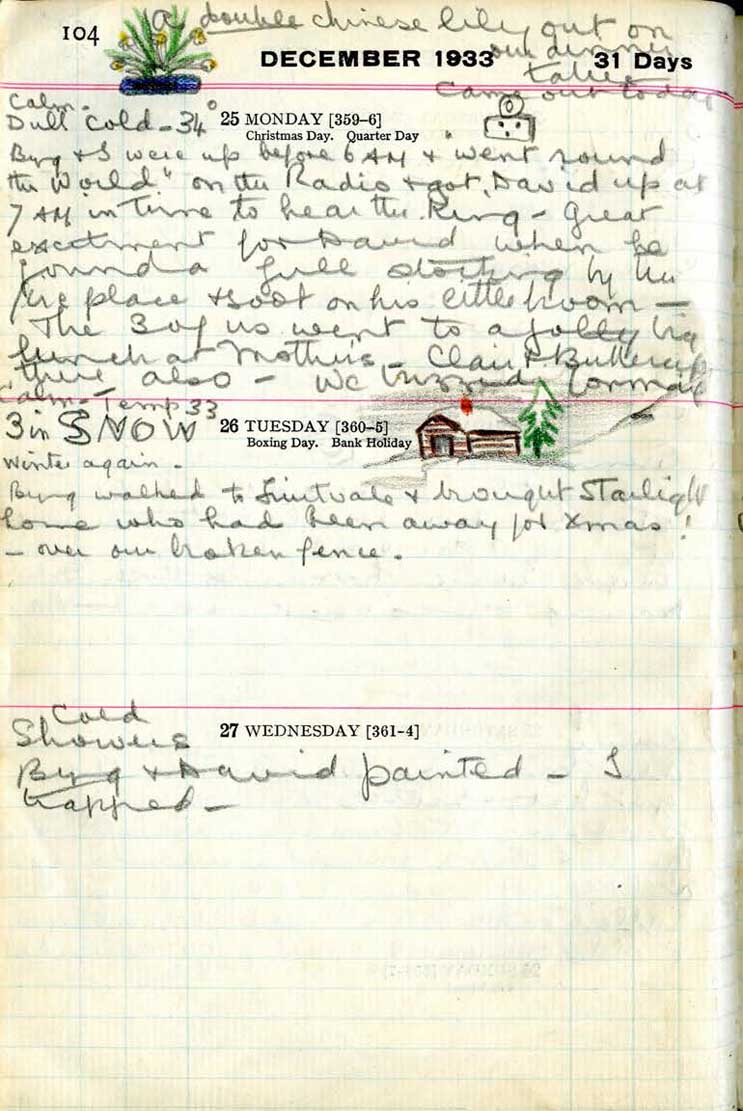 104
a double chinese lily out on
our dinner
table
came out today
DECEMBER 1933
31 Days
Calm -
Dull Cold - 34°
25 MONDAY [359-6]
Christmas Day. Quarter Day
Byng & I were up before 6 AM & "went round
the World" on the Radio & got David up at
7 AM in time to hear the King - Great
excitment for David when he
found a full stocking by the
fire place & soot on his little broom -
The 3 of us went to a jolly big
lunch at Mothers - Clair & Buttercup
there also - We
Calm - Temp 33
3 in SNOW
26 TUESDAY [360-5]
Boxing Day. Bank Holiday
Winter again.
Byng walked to & brought Starlight
home who had been away for Xmas!
- over our broken fence.
Cold
Showers
27 WEDNESDAY [361-4]
Byng & David painted - I
trapped -